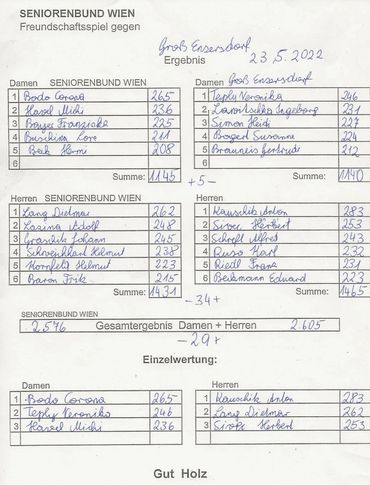 SENIORENBUND WIEN
Freundschaftsspiel gegen
Groß Enzersdorf
Ergebnis 23.5.2022
Damen SENIORENBUND WIEN
1 Bodo Corona 265
2 Havel Michi 236
3 Bayer Franziska 225
4 Buschina Lore 211
5 Beck Hermi 208
6
Summe: 1145
Damen Groß Enzersdorf
1 Tephy Veronika 246
2 Ingeborg 231
3 Simon Heidi 227
4 Bogert Susanne 224
5 Brauneis Gertrude 212
6
Summe: 1140
+5-
Herren SENIORENBUND WIEN
1 Lang Dietmar 262
2 Lasina Adolf 248
3 Johann 245
4 Helmut 238
5 Kornfeld Helmut 223
6 Baron Fritz 215
Summe: 1431
Herren
1 Kauschik Anton 283
2 Herbert 253
3 Alfred 243
4 Russ Karl 232
5 Riedl Franz 231
6 Beckmann Eduard 223
Summe: 1465
-34+
SENIORENBUND WIEN
2.576 Gesamtergebnis Damen + Herren 2.605
-29+
Einzelwertung:
Damen
1 Bodo Corona 265
2 Tephy Veronika 246
3 Havel Michi 236
Herren
1 Kauschik Anton 283
2 Lang Dietmar 262
3 Herbert 253
Gut Holz